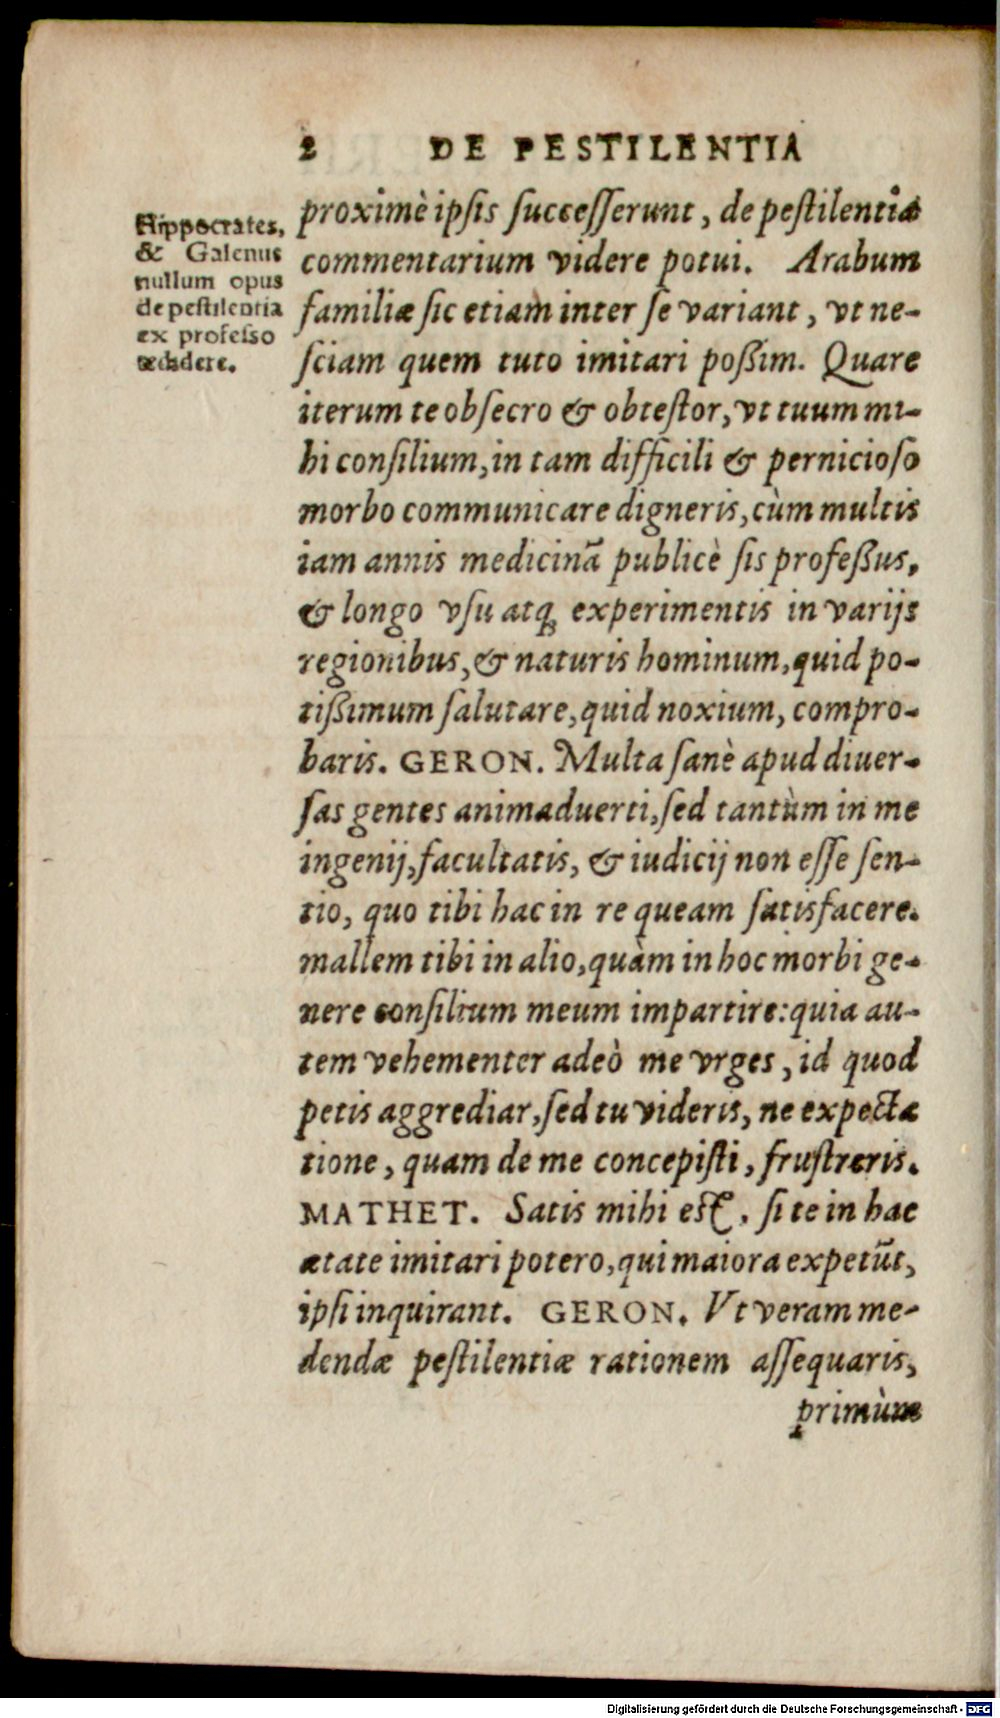 2 DE PESTILENTIA
Hippocrates,
& Galenus
nullum opus
de pestilentia
ex professo
ædidere.
proximè ipsis successerunt, de pestilentia
commentarium videre potui. Arabum
familiæ sic etiam inter se variant, vt ne-
sciam quem tuto imitari poßim. Quare
iterum te obsecro & obtestor, vt tuum mi-
hi consilium, in tam difficili & pernicioso
morbo communicare digneris, cùm multis
iam annis medicinā publicè sis profeßus,
& longo vsu atq; experimentis in varijs
regionibus, & naturis hominum, quid po-
tißimum salutare, quid noxium, compro-
baris. GERON. Multa sanè apud diuer-
sas gentes animaduerti, sed tantùm in me
ingenij, facultatis, & iudicij non esse sen-
tio, quo tibi hac in re queam satisfacere.
mallem tibi in alio, quàm in hoc morbi ge-
nere consilium meum impartire: quia au-
tem vehementer adeò me vrges, id quod
petis aggrediar, sed tu videris, ne expecta
tione, quam de me concepisti, frustreris.
MATHET. Satis mihi est, si te in hac
ætate imitari potero, qui maiora expetūt,
ipsi inquirant. GERON. Vt veram me-
dendæ pestilentiæ rationem assequaris,
primùm
Digitalisierung gefördert durch die Deutsche Forschungsgemeinschaft - DFG